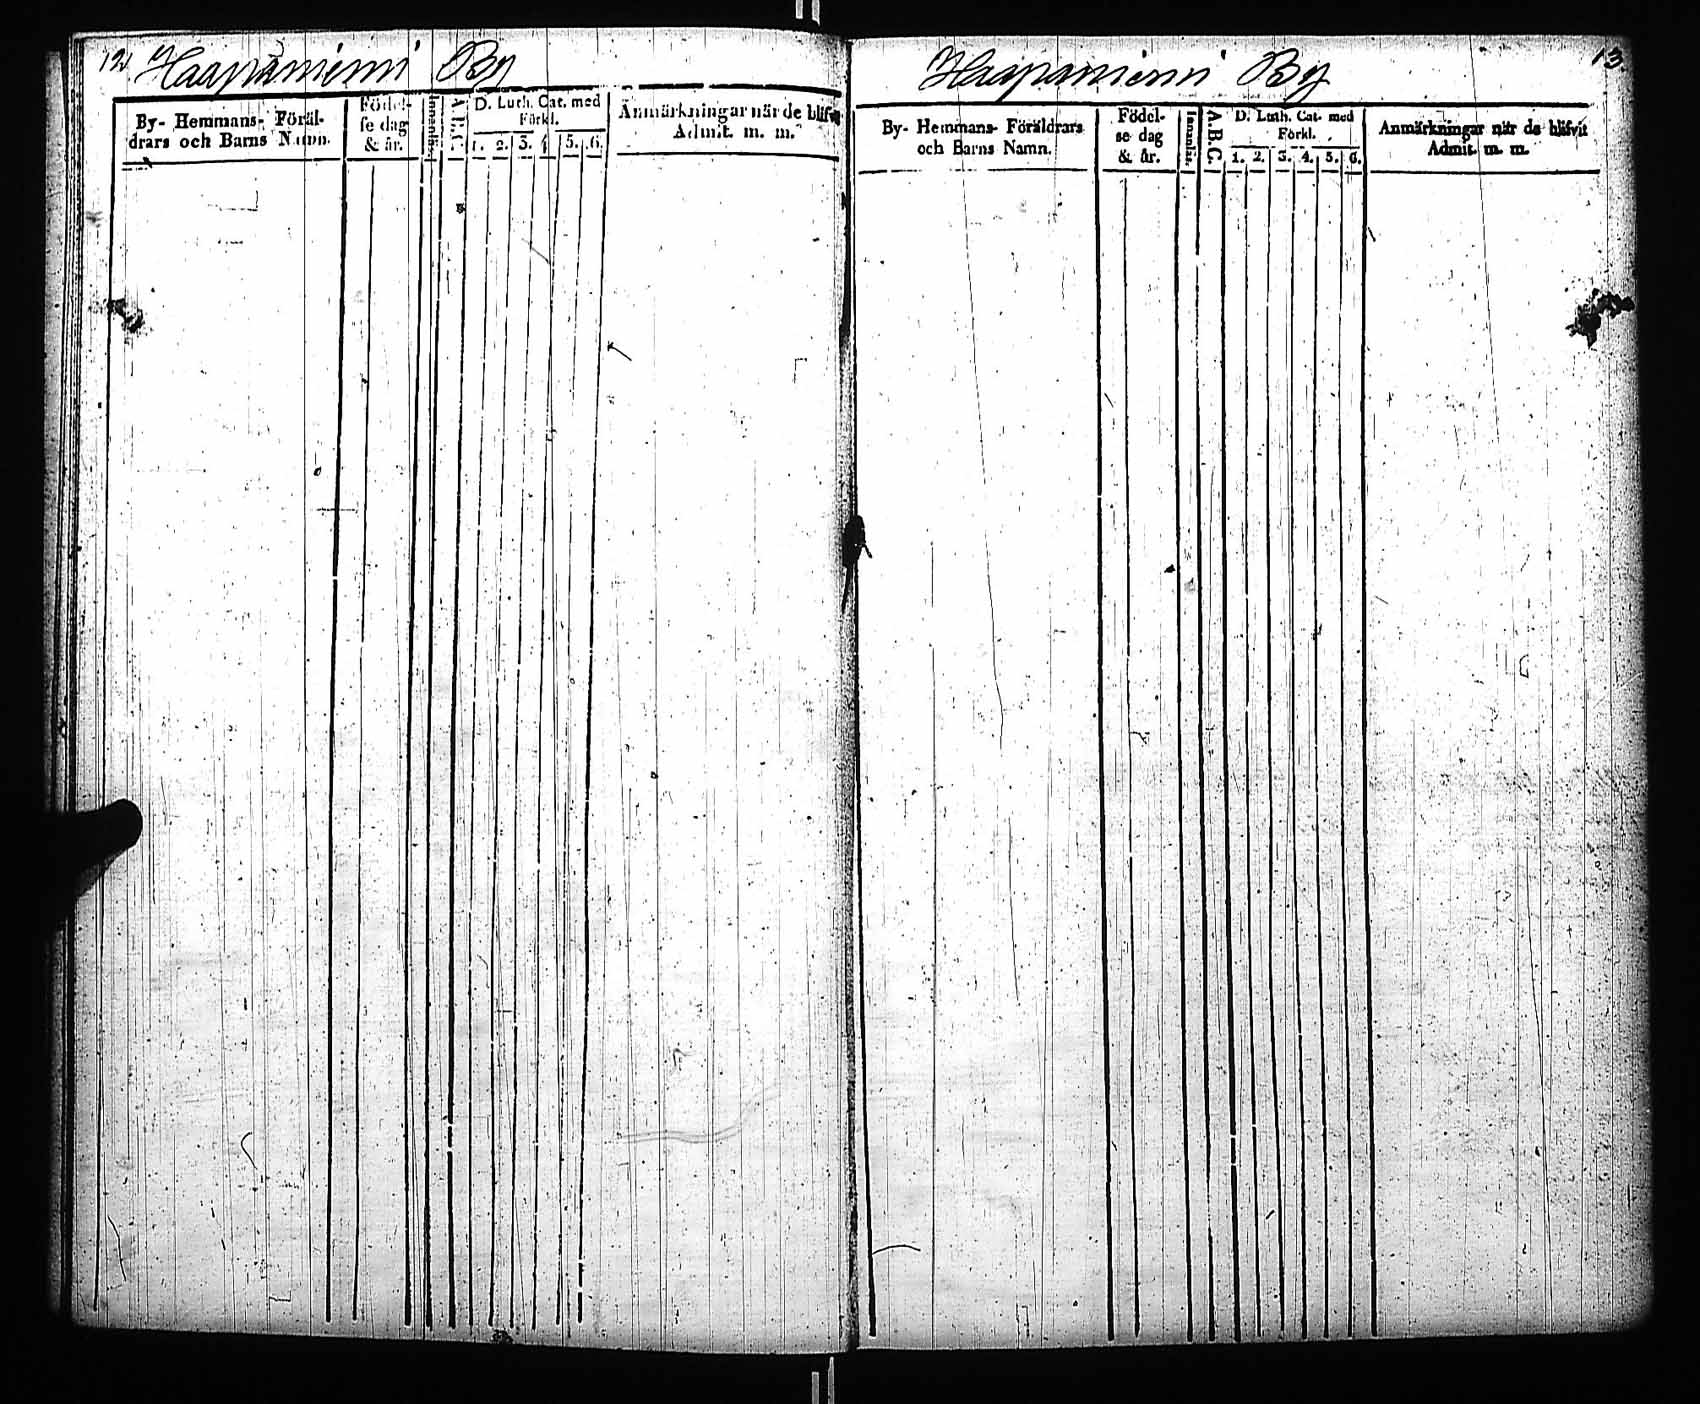 12 Haapaniemi By
By- Hemmans- Föräl-
drars och Barns Namn.
Födel-
se dag
& år.
Innanläs.
A.B.C.
D. Luth. Cat. med
Förkl.
1. 2. 3. 4 5. 6.
Anmärkningar när de blifvit
Admit. m. m.
Haapaniemi By 13.
By- Hemmans- Föräldrars
och Barns Namn.
Födel-
se dag
& år.
Innanläs.
A.B.C.
D. Luth. Cat. med
Förkl.
1. 2. 3. 4. 5. 6.
Anmärkningar när de blifvit
Admit. m. m.